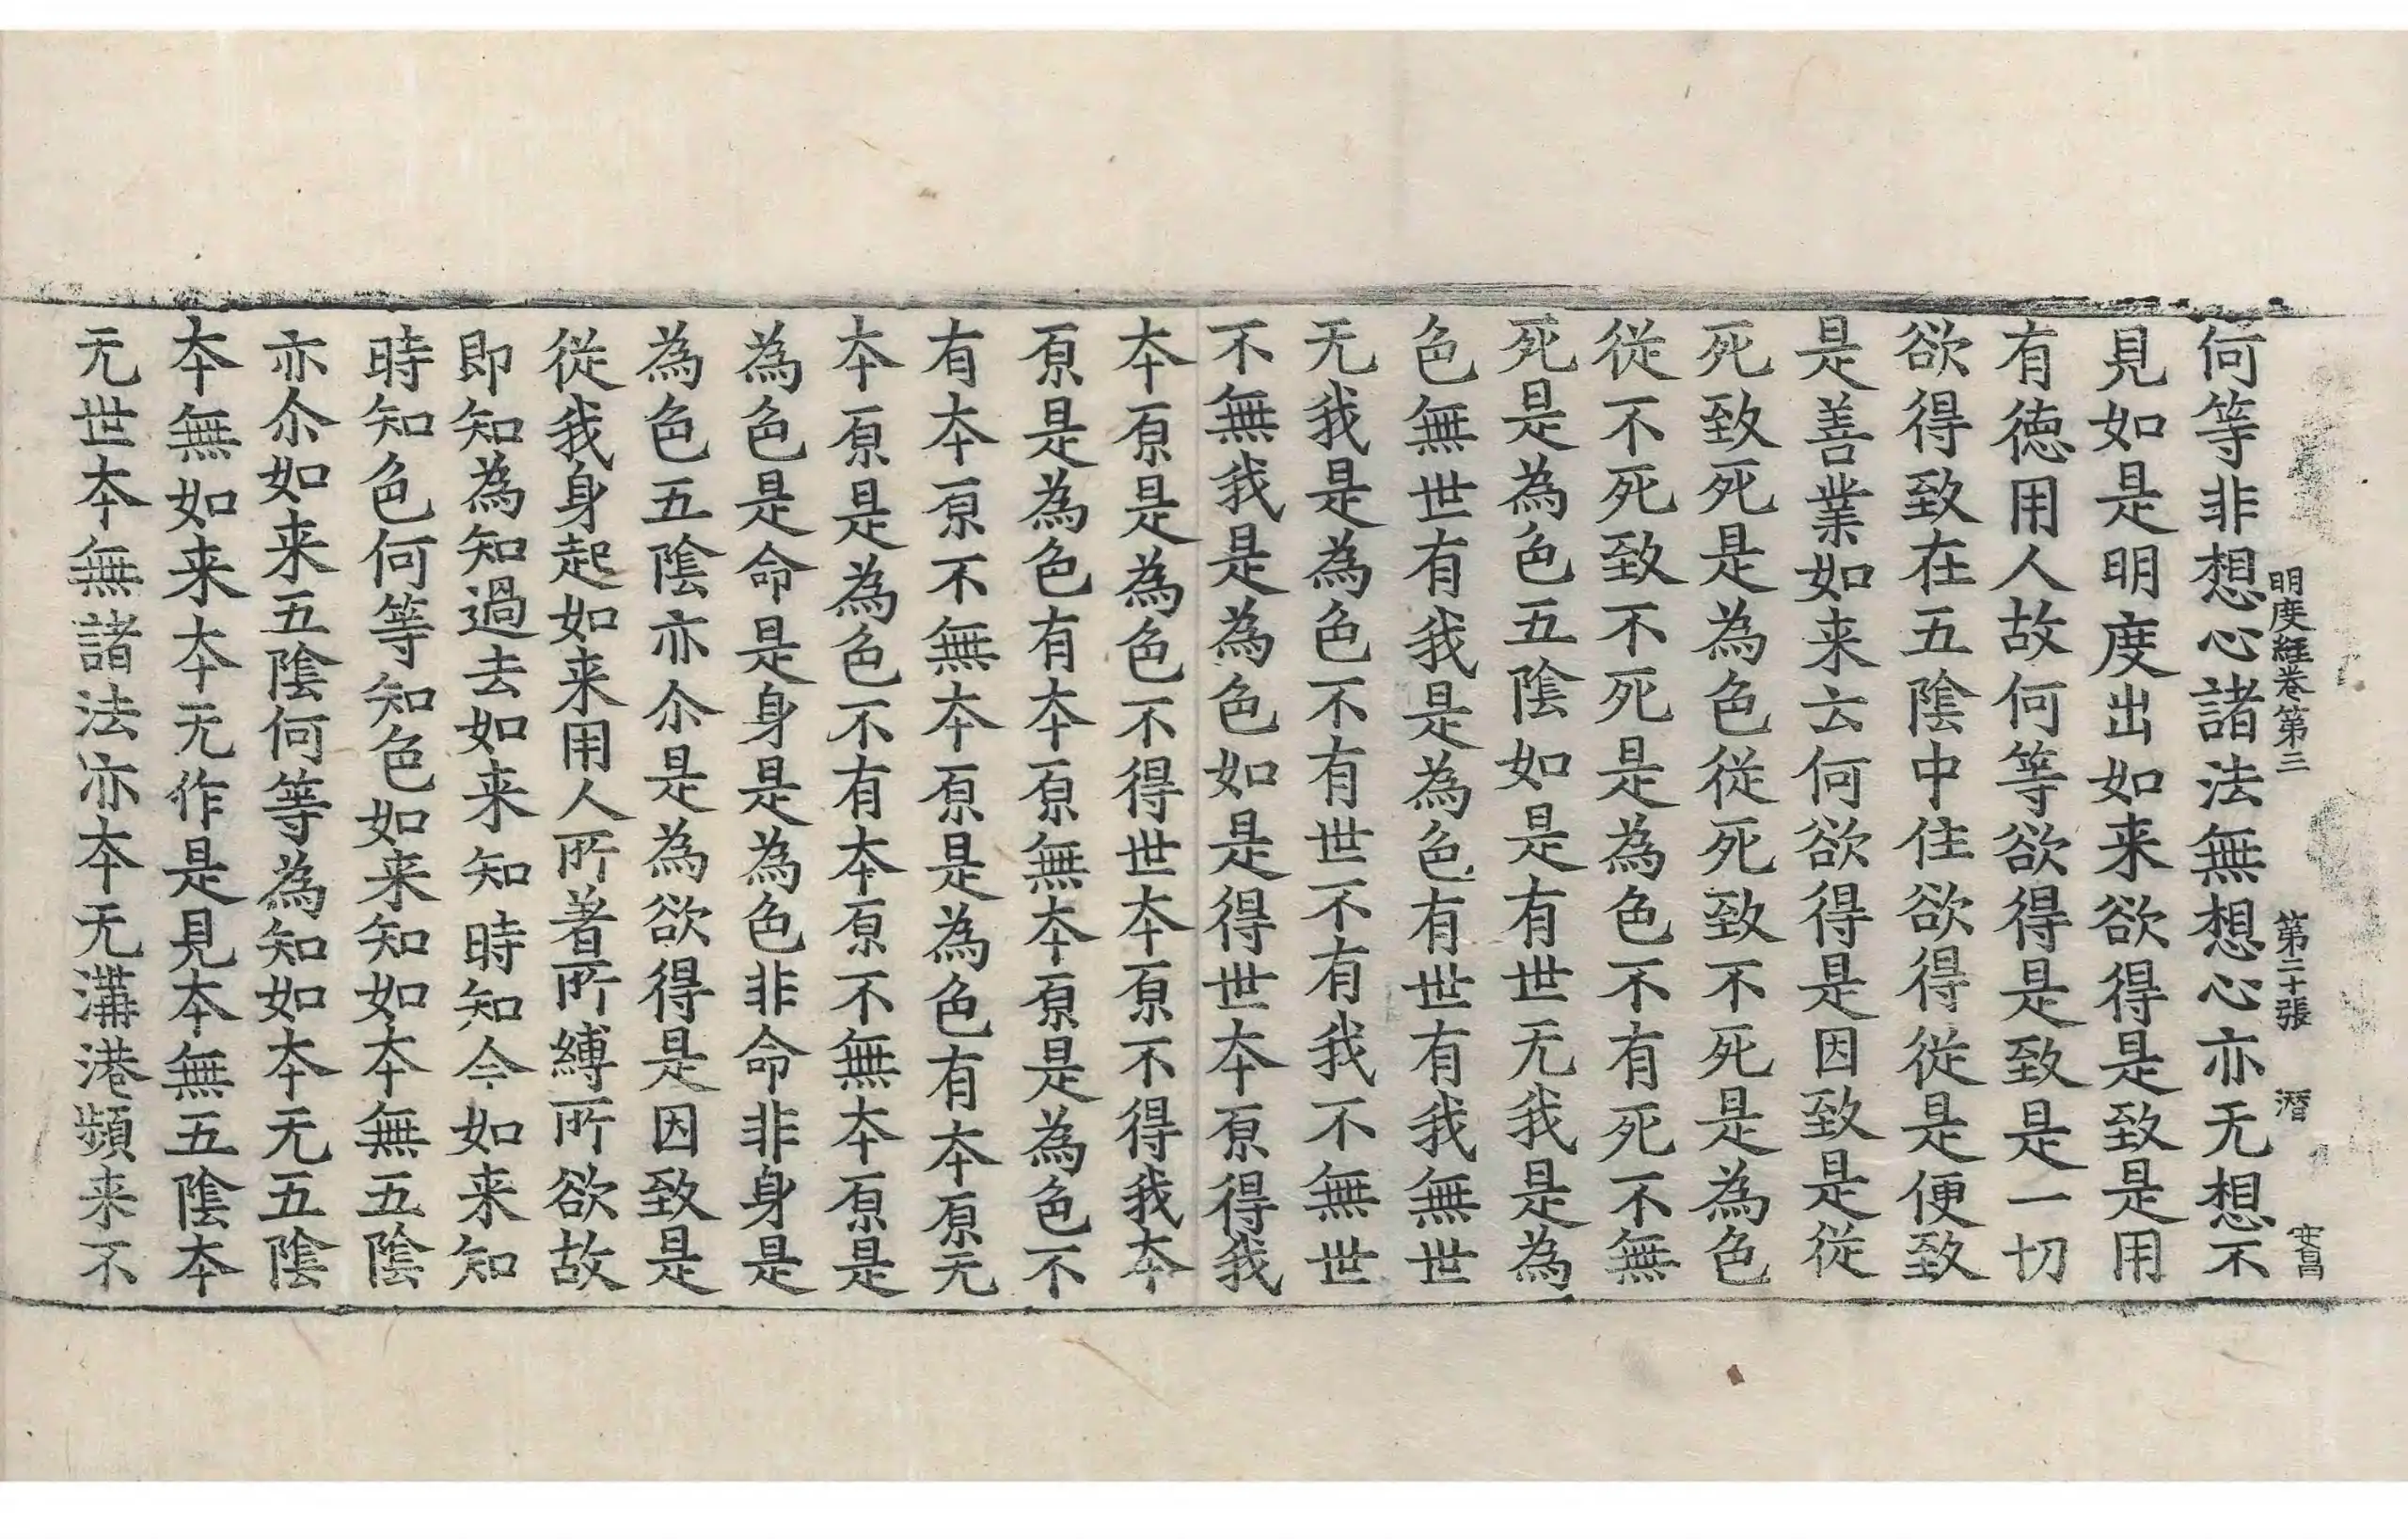 何等非想心諸法無想心亦无想不
明度經卷第三 第二十張 潛
見如是明度出如来欲得是致是用
有德用人故何等欲得是致是一切
欲得致在五陰中住欲得從是便致
是善業如来云何欲得是因致是從
死致死是為色從死致不死是為色
從不死致不死是為色不有死不無
死是為色五陰如是有世无我是為
色無世有我是為色有世有我無世
无我是為色不有世不有我不無世
不無我是為色如是得世本原得我
本原是為色不得世本原不得我本
原是為色有本原無本原是為色不
有本原不無本原是為色有本原无
本原是為色不有本原不無本原是
為色是命是身是為色非命非身是
為色五陰亦尒是為欲得是因致是
從我身起如来用人所著所縛所欲故
即知為知過去如来知時知今如来知
時知色何等知色如来知如本無五陰
亦尒如来五陰何等為知如本无五陰
本無如来本无作是見本無五陰本
无世本無諸法亦本无溝港頻来不